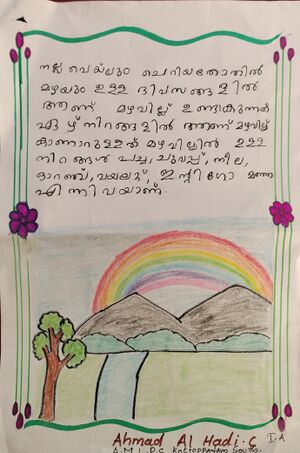 നല്ല വെയിലും ചെറിയതോതിൽ
മഴയും ഉള്ള ദിവസങ്ങളിൽ
ആണ് മഴവില്ല് ഉണ്ടാകുന്നത്
ഏഴ് നിറങ്ങളിൽ ആണ് മഴവില്ല്
കാണാറുള്ളത് മഴവില്ലിൽ ഉള്ള
നിറങ്ങൾ പച്ച, ചുവപ്പ്, നീല,
ഓറഞ്ച്, വയലറ്റ്, ഇന്റിഗോ മഞ്ഞ
എന്നിവയാണ്.
Ahmad Al Hadi. C
I. A
A.M.L.P.S Kottoppadam South.